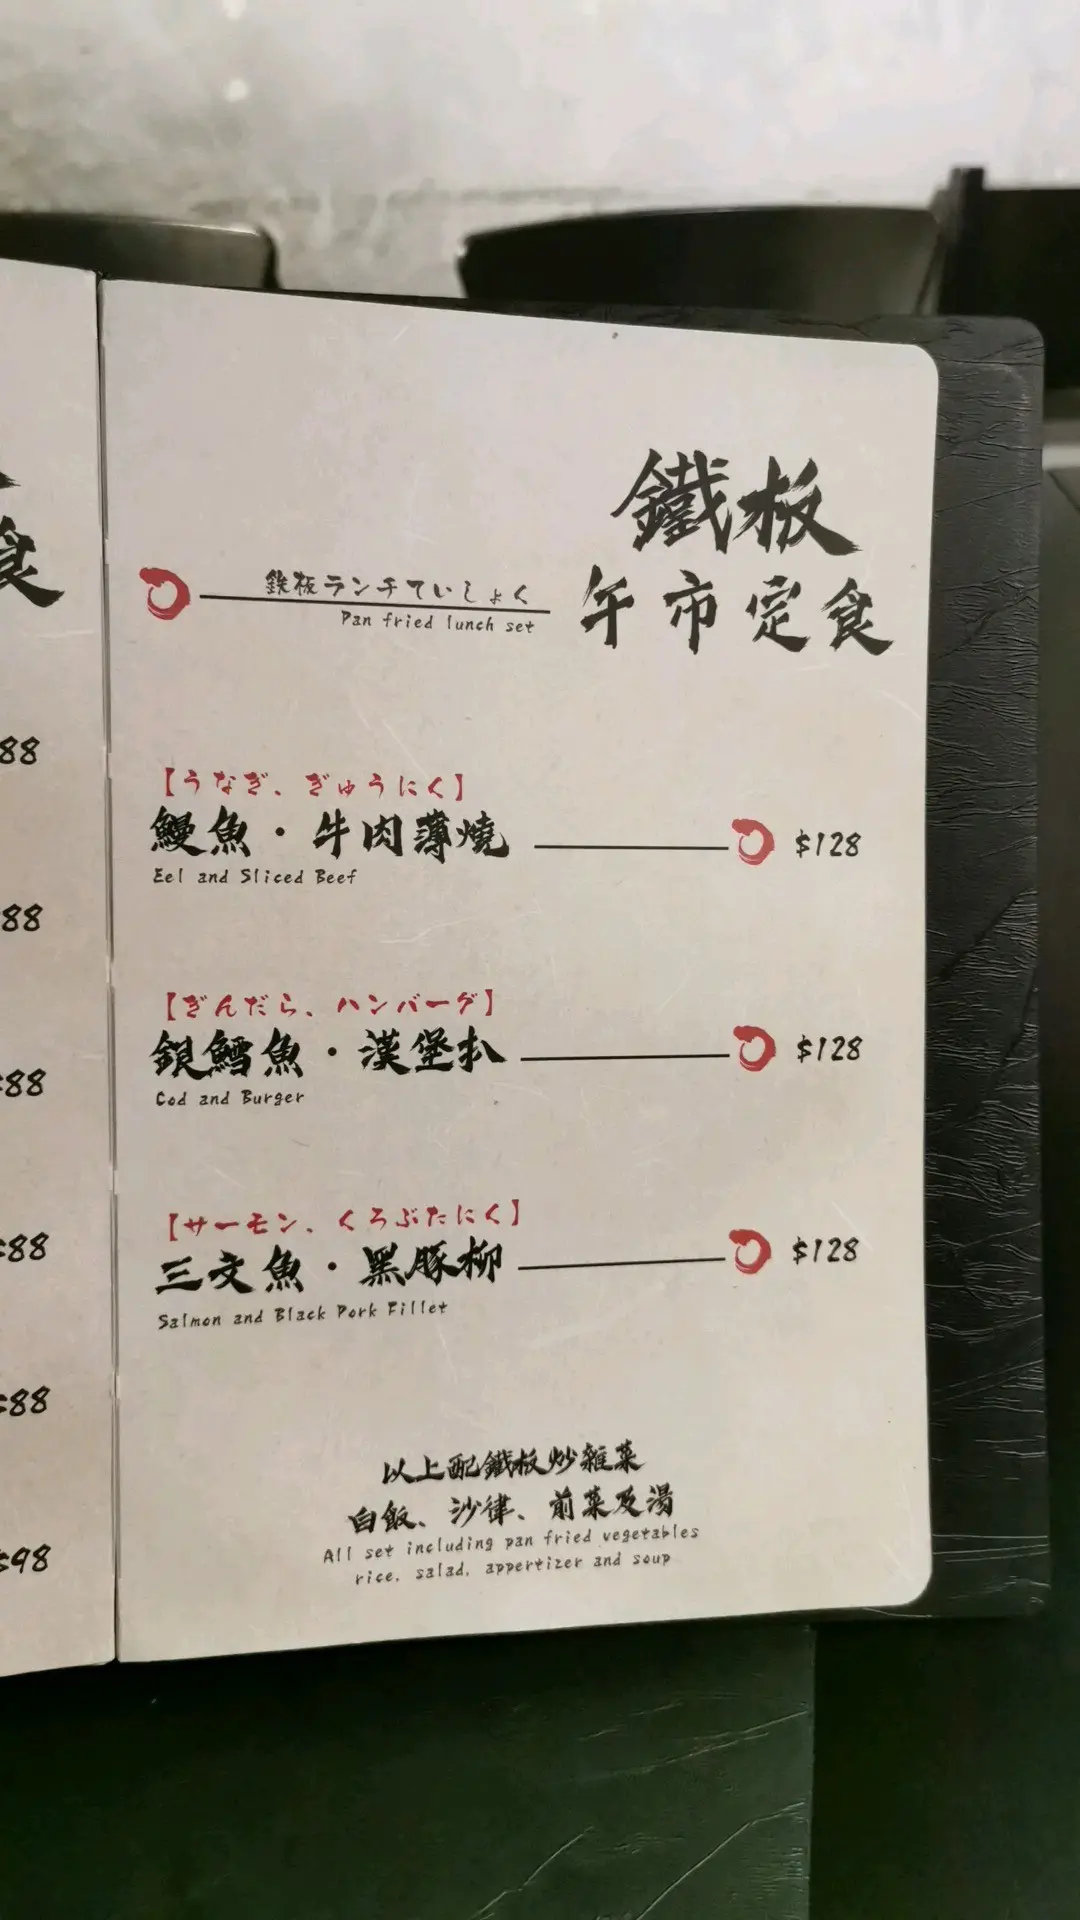 食
88
88
$88
$88
$88
$98
鐵板
午市定食
鉄板ランチていしょく
Pan fried lunch set
【うなぎ、ぎゅうにく】
鰻魚・牛肉薄燒 $128
Eel and Sliced Beef
【ぎんだら、ハンバーグ】
銀鱈魚・漢堡扒 $128
Cod and Burger
【サーモン、くろぶたにく】
三文魚・黑豚柳 $128
Salmon and Black Pork Fillet
以上配鐵板炒雜菜
白飯、沙律、前菜及湯
All set including pan fried vegetables
rice, salad, appertizer and soup